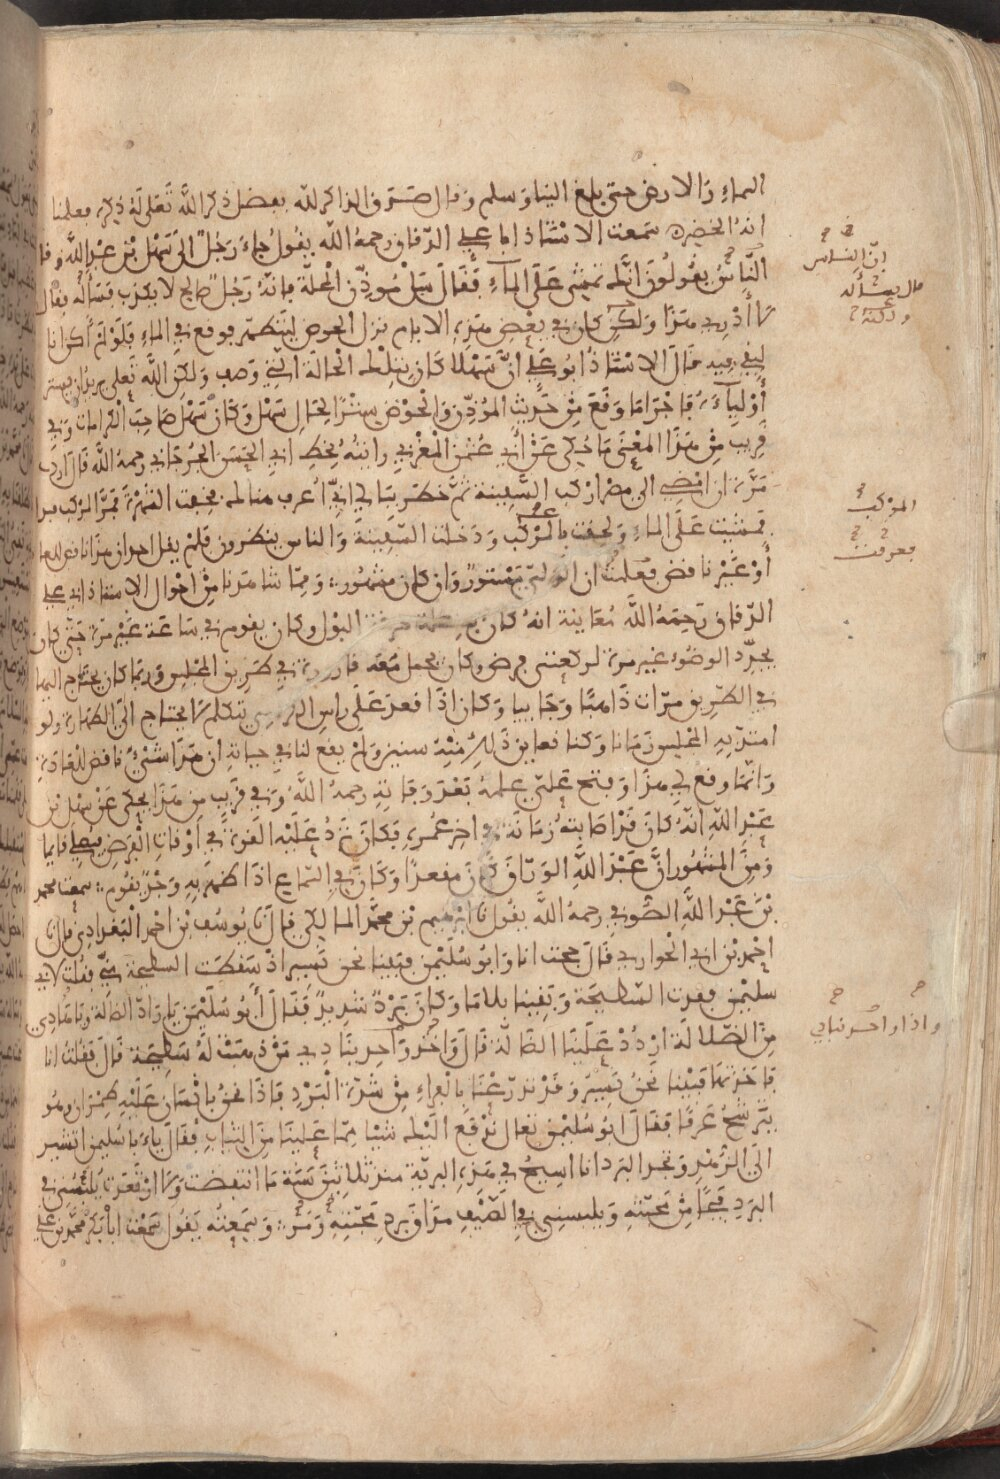 السماء والارض حتى بلغ الينا وسلم وقال صدق الذاكر لله بفضل ذكر الله تعلى له ذكره فعلمنا
انه الخضر سمعت الاستاذ ابا علي الدقاق رحمه الله يقول جاء رجل الى سهل بن عبد الله وقا
الناس يقولون انك تمشي على الماء فقال سل مؤذن المحلة فانه رجل صالح لا يكذب فسأله فقال
لا أدري هذا ولكن كان في بعض هذه الايام نزل الحوض ليتطهر فوقع في الماء فلو لم أكن انا
لبقي فيه قال الاستاذ ابو علي ان سهلا كان بتلك الحالة التي وصف ولكن الله تعلى يريد ان يستر
أولياءه فاجرا ما وقع من حديث المؤذن والحوض سترا لحال سهل وكان سهل صاحب الكرامات وفي
قريب من هذا المعنى ما حكي عن أبي عثمن المغربي رايته بخط ابي الحسن الجرجاني رحمه الله قال اردت
مرة ان امضي الى مصر اركب السفينة ثم خطر ببالي اني أعرف هنالك فخفت الشهرة فمر المركب فبدا
فمشيت على الماء ولحقت بالمركب ودخلت السفينة والناس ينظرون فلم يقل احد ان هذا ناقض للعادة
أو غير ناقض فعلمت ان الولي مستور وان كان مشهور ومما شاهدنا من احوال الاستاذ ابي علي
الدقاق رحمه الله معاينة انه كان به علة حرقة البول وكان يقوم في ساعة غير مرة حتى كان
يجدد الوضوء غير مرة لركعتي فرض وكان يحمل معه قارورة في طريق المجلس وربما كان يحتاج اليها
في الطريق مرات ذاهبا وجاييا وكان اذا قعد على راس الكرسي يتكلم لا يحتاج الى الطهارة ولو
امتد به المجلس زمانا وكنا نعاين ذلك منه سنين ولم يقع لنا في حياته ان هذا شيئ ناقض للعادة
وانما وقع لي هذا وفتح علي علمه بعد وفاته رحمه الله وفي قريب من هذا يحكى عن سهل بن
عبد الله انه كان قد اصابته زمانة في اخر عمره فكان ترد عليه القوة في أوقات الفرض فيصلي قايما
ومن المشهور ان عبد الله الوزان كان مقعدا وكان في السماع اذا ظهر به وجد يقوم سمعت محمد
بن عبد الله الصوفي رحمه الله يقول نا ابرهيم بن محمد المالكي قال نا يوسف بن احمد البغدادي قال نا
احمد بن ابي الحواري قال حججت انا وابو سليمن فبينا نحن نسير اذ سقطت السطيحة مني فقلت لابي
سليمن فقدت السطيحة وبقينا بلا ما وكان برد شديد فقال أبو سليمن يا راد الضالة ويا هادي
من الضلالة اردد علينا الضالة قال واخر واحد ينادي من ذهبت له سطيحة قال فقلت انا
فاخذتها فبينا نحن نسير وقد تدرعنا بالفراء من شدة البرد فاذا نحن بانسان عليه طمران وهو
يترشح عرقا فقال ابو سليمن تعال ندفع اليك شيا مما علينا من الثياب فقال يابا سليمن اتشير
الى الزهد وتجد البرد انا اسيح في هذه البرية منذ ثلاثين سنة ما انتفضت ولا ارتعدت يلبسني في
البرد فيحا من محبته ويلبسني في الصيف مذاق برد محبته ومر وسمعته يقول سمعت ابا بكر محمد بن علي
ان الناس
قال فسأله
المركب
فعرفت
واذا واحد ينادي